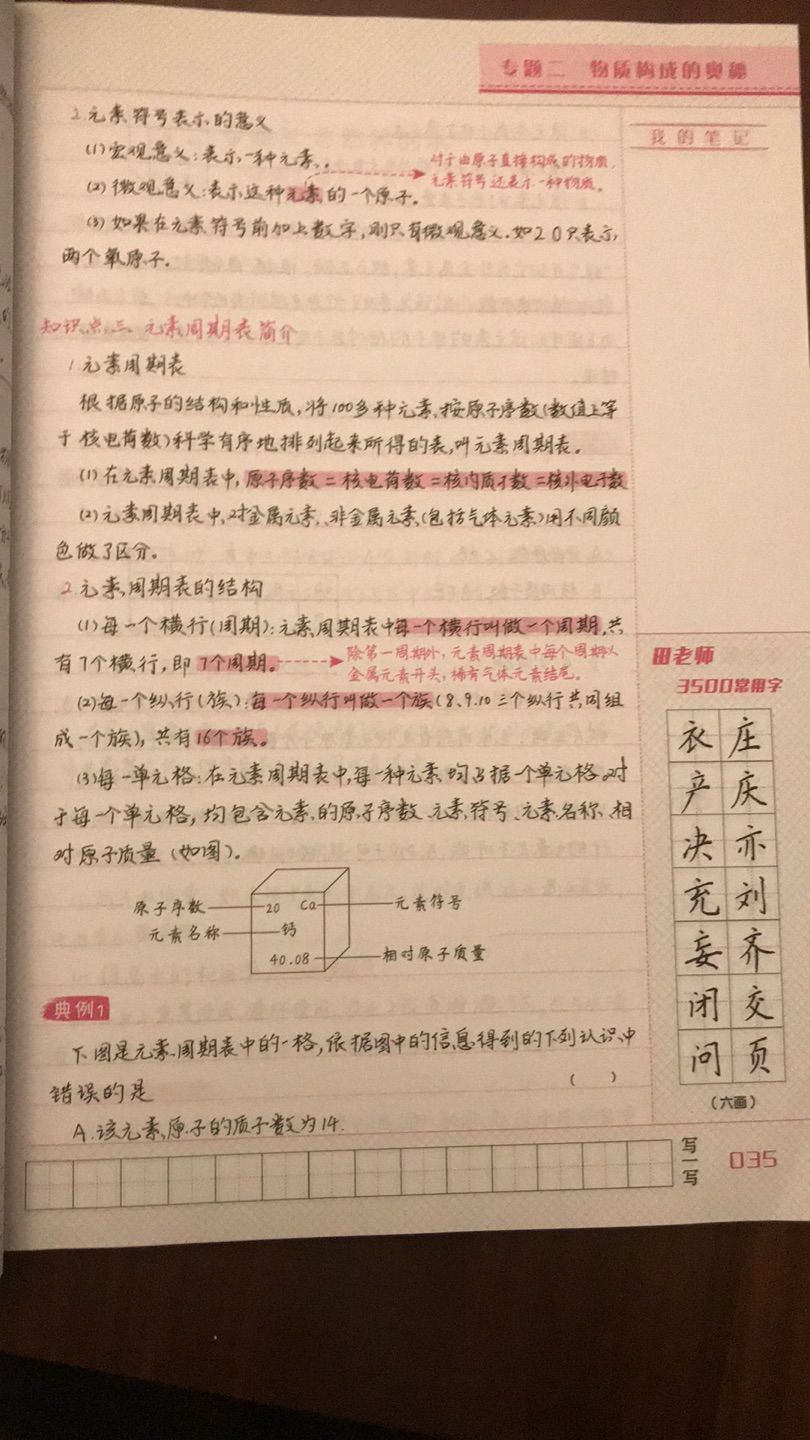 专题二 物质构成的奥秘
我的笔记
2.元素符号表示的意义
(1)宏观意义:表示一种元素。
对于由原子直接构成的物质,
元素符号还表示一种物质。
(2)微观意义:表示这种元素的一个原子。
(3)如果在元素符号前加上数字,则只有微观意义.如2O只表示
两个氧原子.
知识点三 元素周期表简介
1.元素周期表
根据原子的结构和性质,将100多种元素,按原子序数(数值上等
于核电荷数)科学有序地排列起来所得的表,叫元素周期表。
(1)在元素周期表中,原子序数=核电荷数=核内质子数=核外电子数
(2)元素周期表中,对金属元素、非金属元素(包括气体元素)用不同颜
色做了区分。
2.元素周期表的结构
(1)每一个横行(周期):元素周期表中每一个横行叫做一个周期,共
有7个横行,即7个周期。
除第一周期外,元素周期表中每个周期从
金属元素开头,稀有气体元素结尾。
(2)每一个纵行(族):每一个纵行叫做一个族(8、9、10三个纵行共同组
成一个族),共有16个族。
(3)每一单元格:在元素周期表中,每一种元素均占据一个单元格。对
于每一个单元格,均包含元素的原子序数、元素符号、元素名称、相
对原子质量(如图)。
原子序数 20 Ca 元素符号
元素名称 钙
40.08 相对原子质量
典例1
下图是元素周期表中的一格,依据图中的信息得到的下列认识中
错误的是 ( )
A.该元素原子的质子数为14.
田老师
3500常用字
衣 庄
产 庆
决 亦
充 刘
妄 齐
闭 交
问 页
(六画)
写一写
035